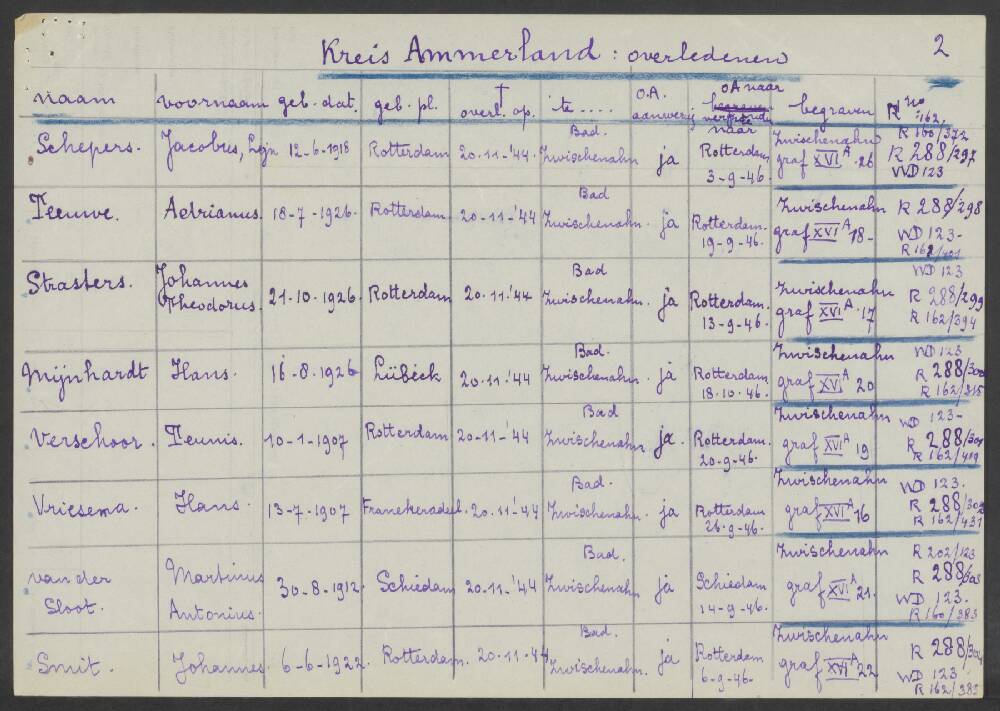 Kreis Ammerland : overledenen
2
naam voornaam geb. dat. geb. pl. † overl. op. te .... O.A. aanwezig OA naar verzonden naar begraven R no 162,
Schepers. Jacobus, 12-6-1918 Rotterdam 20-11-'44 Bad. Zwischenahn ja Rotterdam 3-9-46. Zwischenahn graf XVI A 26 R 160/372 R 288/297 WD 123
Teeuwe. Adrianus. 18-7-1926. Rotterdam 20-11-'44 Bad Zwischenahn. ja Rotterdam. 19-9-46. Zwischenahn graf XVI A 18- R 288/298 WD 123- R 162/401
Strasters. Johannes Theodorus. 21-10-1926. Rotterdam 20-11-'44 Bad Zwischenahn. ja Rotterdam. 13-9-46. Zwischenahn graf XVI A 17 WD 123 R 288/299 R 162/394
Mijnhardt Hans. 16-8-1926 Lübeck 20-11-'44 Bad. Zwischenahn. ja Rotterdam 18-10-46. Zwischenahn graf XVI A 20 WD 123 R 288/300 R 162/315
Verschoor. Teunis. 10-1-1907 Rotterdam 20-11-'44 Bad Zwischenahn ja. Rotterdam. 20-9-46. Zwischenahn graf XVI A 19 WD 123- R 288/301 R 162/419
Vriesema. Hans. 13-7-1907 Franekeradeel. 20-11-'44 Bad. Zwischenahn. ja Rotterdam 26-9-46. Zwischenahn graf XVI A 16 WD 123. R 288/302 R 162/431
van der Sloot. Martinus Antonius. 30-8-1912. Schiedam 20-11-'44 Bad. Zwischenahn. ja Schiedam 14-9-46. Zwischenahn graf XVI A 21. R 202/123 R 288/303 WD 123. R 160/383
Smit. Johannes. 6-6-1922. Rotterdam. 20-11-44 Bad. Zwischenahn. ja Rotterdam 6-9-46. Zwischenahn graf XVI A 22 R 288/304 WD 123 R 162/383